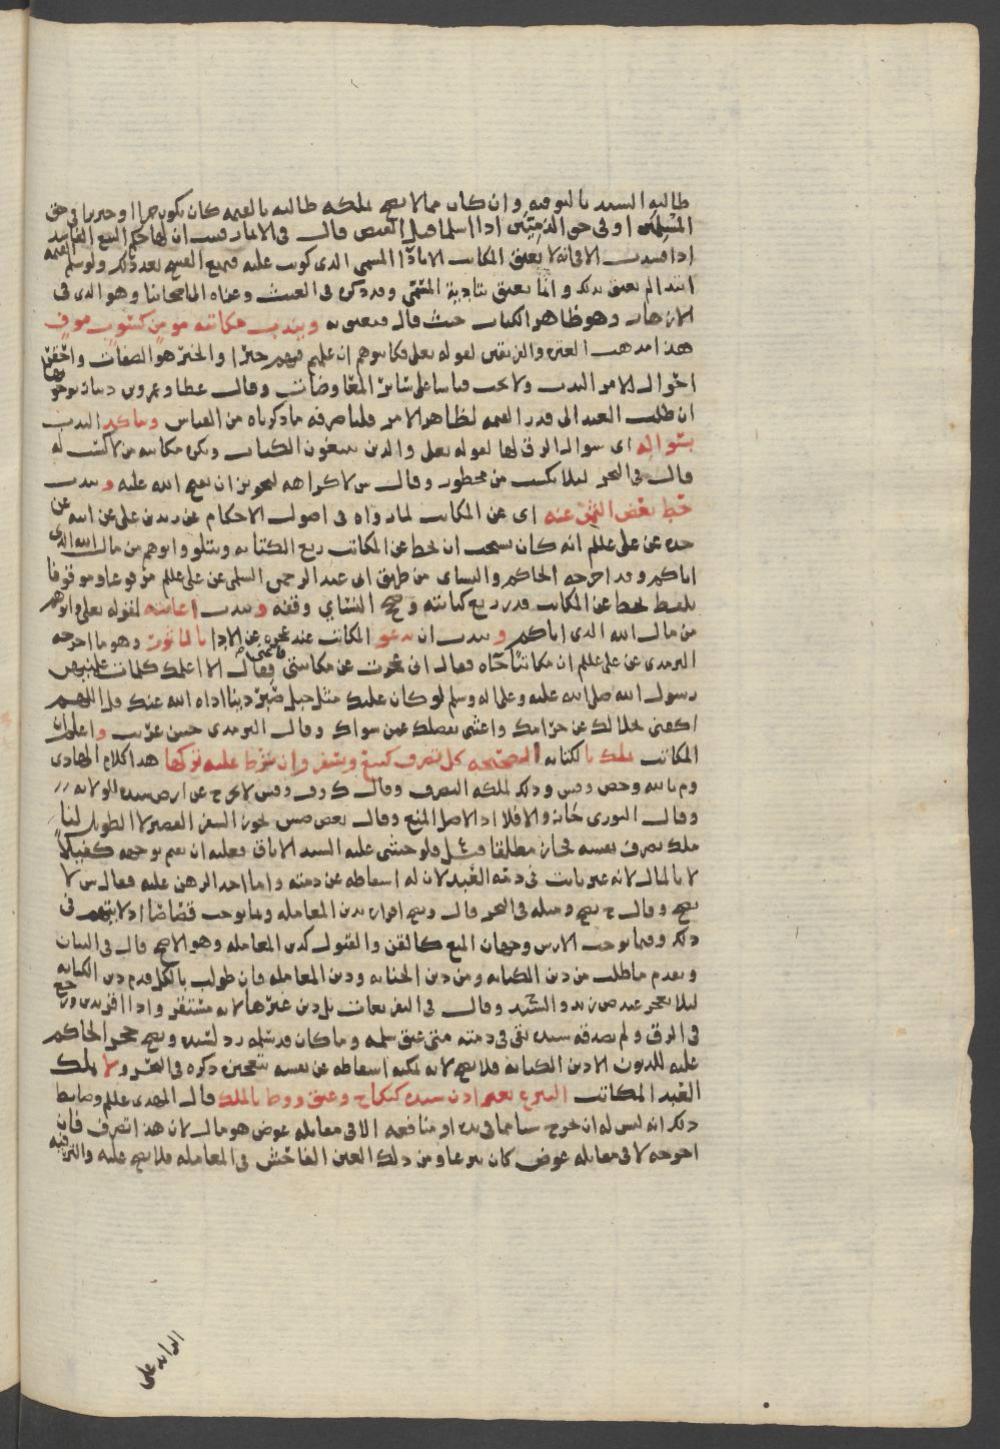 طالبه السيد بالتوفيه وان كان مما لا يصح تملكه طالبه بالقيمة كان يكون خمرا او خنزيرا في حق
المسلمين او في حق الذميين اذا اسلما قبل القبض قال في الاثمار فبين ان لها حكم البيع الفاسد
اذا فسدت الا في انه لا يعتق المكاتب الا باداء المسمى الذي كوتب عليه فيدفع القيمة بعد ذلك ولو سلم القيمة
ابتدا لم يعتق بذلك وانما يعتق بتادية المسمى وقد ذكره في الغيث وعزاه الى اصحابنا وهو الذي في
الازهار وهو ظاهر الكتاب حيث قال فيعتق به ويندب مكاتبة مومن كسوب موف
هذا مذهب العترة والفريقين لقوله تعلى فكاتبوهم ان علمتم فيهم خيرا والخير هو الصفات واخف
احوال الامر الندب ولا يجب قياسا على سائر المعاوضات وقال عطا وعمرو بن دينار بوجوبها
ان طلب العبد الى قدر القيمة لظاهر الامر قلنا صرفه ما ذكرناه من القياس ويتاكد الندب
بسواله اي سوال الرق لها لقوله تعلى والذين يبتغون الكتاب وتكره مكاتبة من لا كسب له
قال في البحر ليلا يكسب من محظور وقال س لا كراهه لتجويز ان يفتح الله عليه ويندب
حط بعض الثمن عنه اي عن المكاتب لما رواه في اصول الاحكام عن زيد بن علي عن ابيه عن
جده عن علي عللم انه كان يستحب ان يحط عن المكاتب ربع الكتابه ويتلو واتوهم من مال الله الذي
اتاكم وقد اخرجه الحاكم والنساي من طريق ابي عبد الرحمن السلمي عن علي عللم مرفوعا وموقوفا
بلفظ يحط عن المكاتب قدر ربع كتابته وصحح النساي وقفه ويندب اعانته لقوله تعلى واتوهم
من مال الله الذي اتاكم ويندب ان يدعو المكاتب عند عجزه عن الادا بالماثور وهو ما اخرجه
الترمذي عن علي عللم ان مكاتبا جاه فقال اني عجزت عن مكاتبتي فاعني فقال الا اعلمك كلمات علمنيهن
رسول الله صلى الله عليه وعلى اله وسلم لو كان عليك مثل جبل صبر دينا اداه الله عنك قل اللهم
اكفني بحلالك عن حرامك واغنني بفضلك عمن سواك وقال الترمذي حسن غريب واعلم ان
المكاتب يملك بالكتابه الصحيحه كل تصرف كبيع وسفر وان شرط عليه تركها هذا كلام الهادي
وم بالله وحص وقش وذلك لملكه التصرف وقال ك وف وقش لا يخرج عن ارض سيده الا باذنه
وقال الثوري جاز والا فلا اذ الاصل المنع وقال بعض صش يجوز السفر القصير لا الطويل لنا
ملك تصرف نفسه فجاز مطلقا قيل فلو خشي عليه السيد الاباق فعليه ان يقيم بوجهه كفيلا
لا بالمال لانه غير ثابت في ذمة العبد لان له اسقاطه عن ذمته واما اخذ الرهن عليه فقال س لا
يصح وقال ح يصح ومثله في البحر قال ويصح اقراره بدين المعامله وبما يوجب قصاصا اذ لا يتهم في
ذلك وفيما يوجب الارش وجهان المنع كالقن والقبول كدين المعامله وهو الاصح قال في البيان
ويقدم ما طلب من دين الكتابه ومن دين الجنايه ودين المعامله فان طولب بالكل قدم دين الكتابه
ليلا يعجز عند ض زيد والسيد وقال في التفريعات بل دين غيرها لانه مستقر واذا اقر بدين ورجع
في الرق ولم يصدقه سيده بقي في ذمته متى عتق سلمه وما كان قد سلمه رد لسيده ويصح حجر الحاكم
عليه للديون الا دين الكتابه فلا يصح لانه يمكنه اسقاطه عن نفسه بتعجيز ذكره في البحر ولا يملك
العبد المكاتب التبرع بغير اذن سيده كنكاح وعتق ووطا بالملك قال المهدي عللم وضابط
ذلك انه ليس له ان يخرج شيا مما في يده او منافعه الا في مقابله عوض هو مال لان هذا تصرف فان
اخرجه لا في مقابله عوض كان تبرعا ومن ذلك الغبن الفاحش في المعامله فلا يصح عليه والترفيه
الزايد على